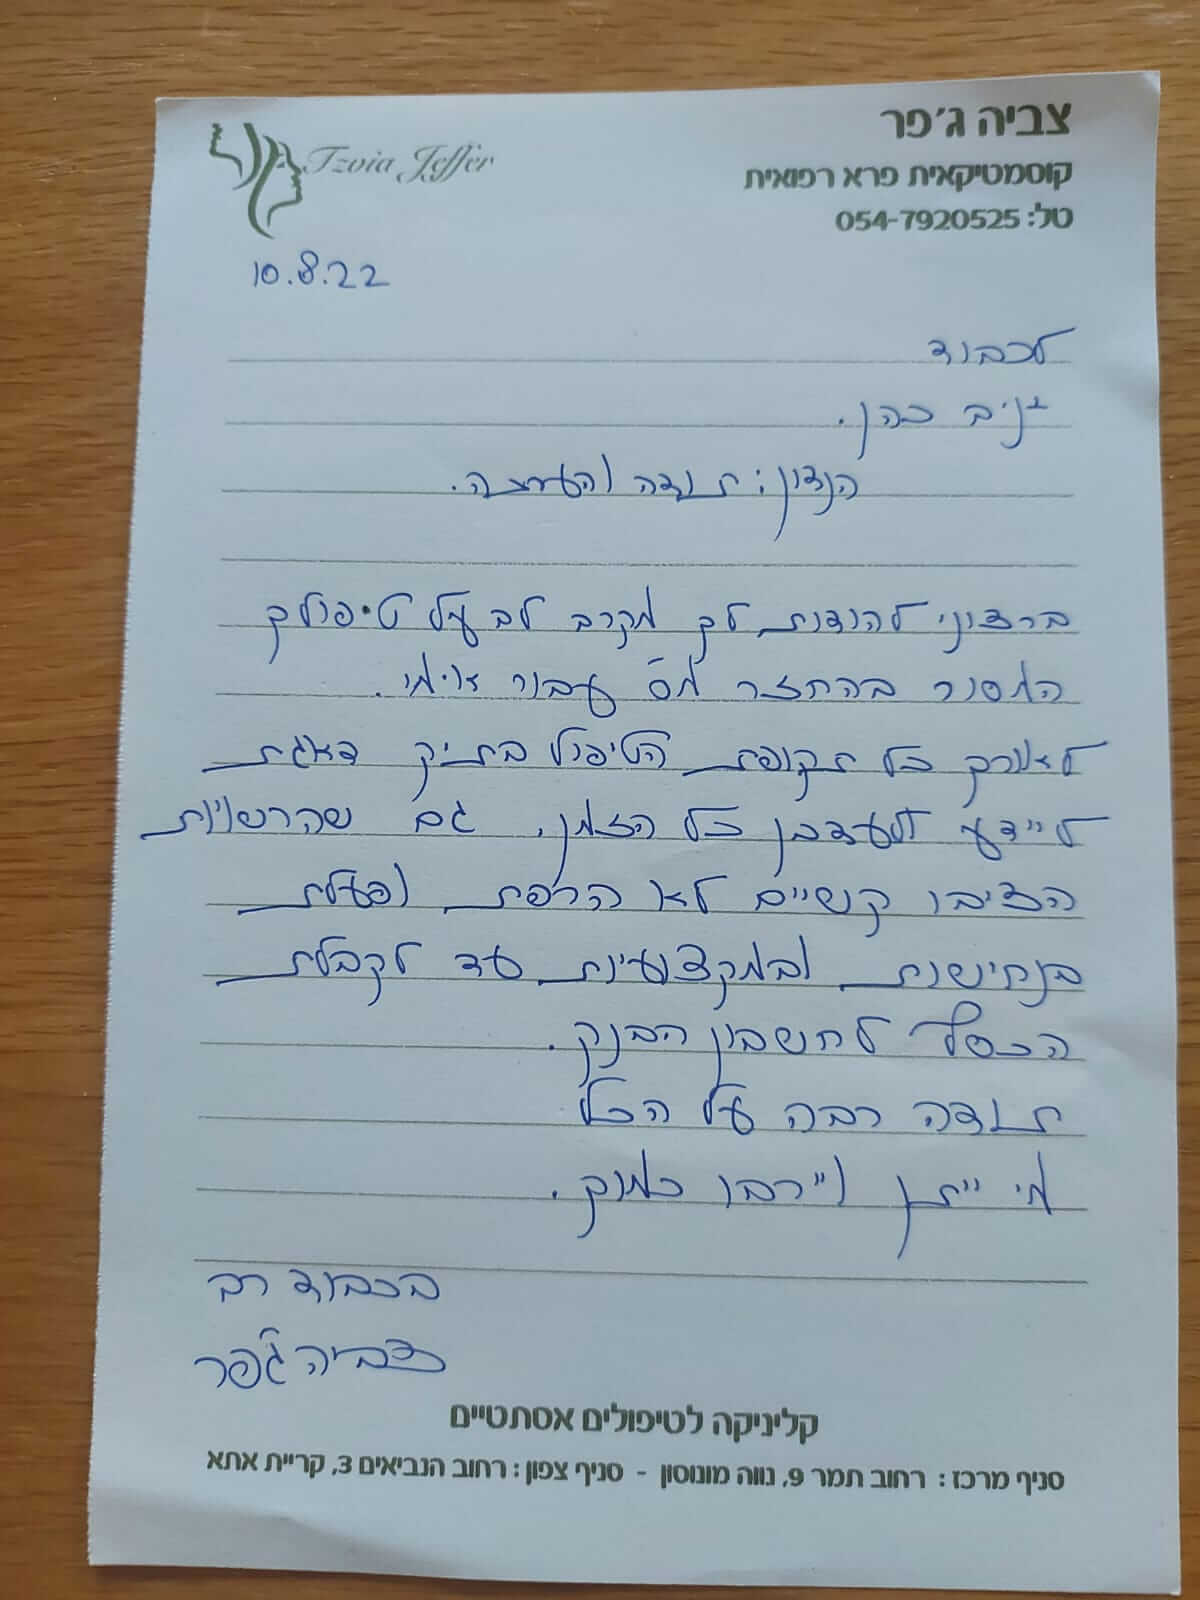 צביה ג'פר
קוסמטיקאית פרא רפואית
טל: 054-7920525
Tzvia Jeffer
10.8.22
לכבוד
יניב כהן.
הנדון: תודה והערכה.
ברצוני להודות לך מקרב לב על טיפולך
המסור בהחזר מס עבור אימי.
לאורך כל תקופת הטיפול בתיק דאגת
ליידע ולעדכן כל הזמן. גם שהרשויות
הציבו קשיים לא הרפת ופעלת
בנחישות ובמקצועיות עד לקבלת
הכסף לחשבון הבנק.
תודה רבה על הכל
מי ייתן וירבו כמוך.
בכבוד רב
צביה ג'פר
קליניקה לטיפולים אסתטיים
סניף מרכז: רחוב תמר 9, נווה מונוסון - סניף צפון: רחוב הנביאים 3, קריית אתא